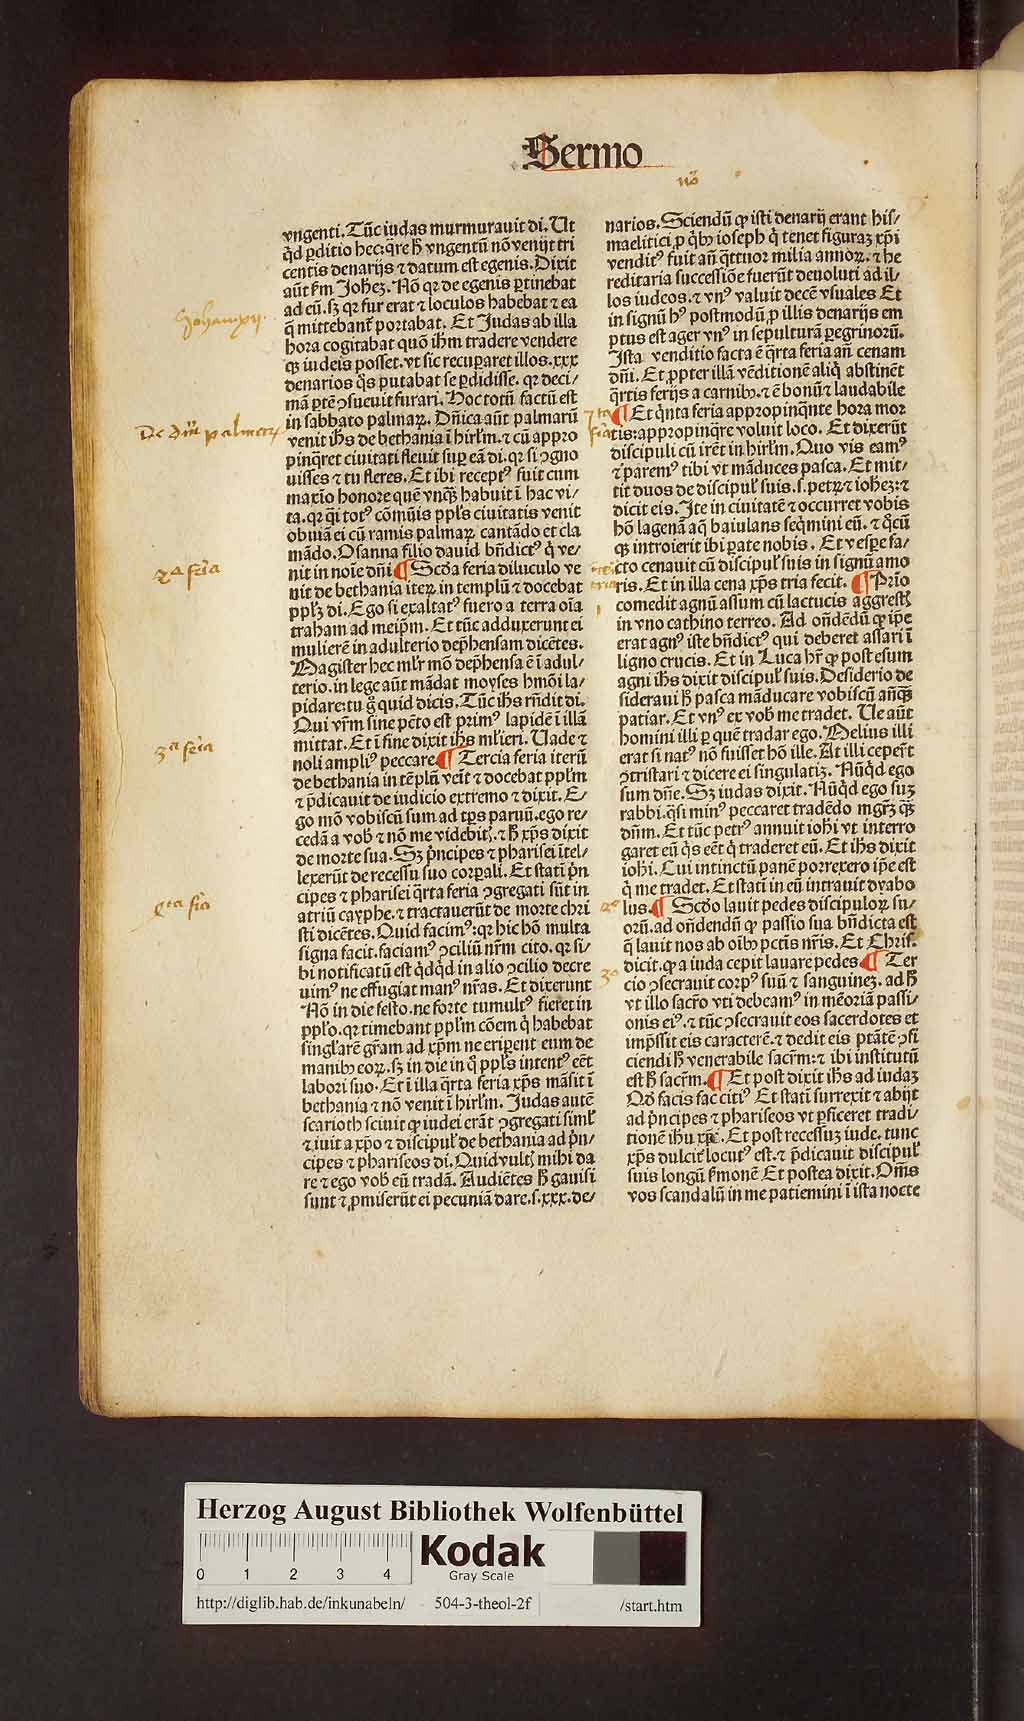 Sermo
vngenti. Tūc iudas murmurauit di. Ut
qͥd ꝑditio hec: qͣre ħ vngentū nō venijt tri
centis denarijs ⁊ datum est egenis. Dixit
aūt ẜm Joheꝫ. Nō qꝛ de egenis ꝑtinebat
ad eū. sꝫ qꝛ fur erat ⁊ loculos habebat ⁊ ea
q̄ mittebant᷑ portabat. Et Judas ab illa
hora cogitabat quō ih̄m tradere vendere
qꝫ iudeis posset. vt sic recuꝑaret illos .xxx
denarios qͦs putabat se ꝑdidisse. qꝛ deci/
mā ꝑtē ɔsueuit furari. Hoc totū factū est
in sabbato palmaꝝ. Dn̄ica aūt palmarū
venit ih̄s de bethania ī hirl̄m. ⁊ cū appro
pinq̄ret ciuitati fleuit suꝑ eā di. qꝛ si ɔgno
uisses ⁊ tu fleres. Et ibi receptꝰ fuit cum
maxio honore quē vnqꝫ habuit ī hac vi/
ta. qꝛ qͥ i totꝰ cōmūis ppl̄s ciuitatis venit
obuiā ei cū ramis palmaꝝ cantādo et cla
mādo. Osanna filio dauid bn̄dictꝰ qͥ ve/
nit in noīe dn̄i ¶ Scd̄a feria diluculo ve
nit de bethania iteꝝ in templū ⁊ docebat
ppl̄ꝫ di. Ego si exaltatꝰ fuero a terra oīa
traham ad meip̄m. Et tūc adduxerunt ei
mulierē in adulterio dep̄hensam dicētes.
Magister hec ml̄r mō dep̄hensa ē ī adul/
terio. in lege aūt mādat moyses hmōi la/
pidare: tu gͦ quid dicis. Tūc ih̄s rn̄dit di.
Qui vr̄m sine pctō est primꝰ lapidē ī illā
mittat. Et ī fine dixit ih̄s ml̄ieri. Uade ⁊
noli ampliꝰ peccare ¶ Tercia feria iterū
de bethania in tēplū veīt ⁊ docebat ppl̄m
⁊ p̄dicauit de iudicio extremo ⁊ dixit. E/
go mō vobiscū sum ad tp̄s paruū. ego re/
cedā a vob̄ ⁊ nō me videbitꝭ. ⁊ ħ xp̄s dixit
de morte sua. Sꝫ pͥncipes ⁊ pharisei ītel/
lexerūt de recessu suo corꝑali. Et statī pͥn
cipes ⁊ pharisei qͣrta feria ɔgregati sūt in
atriū cayphe. ⁊ tractauerūt de morte chri
sti dicētes. Quid facimꝰ: qꝛ hic hō multa
signa facit. faciamꝰ ɔciliū nr̄m cito. qꝛ si/
bi notificatū est qͥdqͥd in alio ɔcilio decre
uimꝰ ne effugiat manꝰ nr̄as. Et dixerūnt
Nō in die festo. ne forte tumultꝰ fieret in
ppl̄o. qꝛ timebant ppl̄m cōem qͥ habebat
singl̄arē gr̄am ad xp̄m ne eriꝑent eum de
manibꝫ eoꝝ. sꝫ in die in qͦ ppl̄s intentꝰ eēt
labori suo. Et ī illa qͣrta feria xp̄s māsit ī
bethania ⁊ nō venit ī hirl̄m. Judas autē
scarioth sciuit ꝙ iudei erāt ɔgregati siml̄
⁊ iuit a xp̄o ⁊ discipul̄ de bethania ad pͥn/
cipes ⁊ phariseos di. Quid vultꝭ mihi da
re ⁊ ego vob̄ eū tradā. Audiētes ħ gauisi
sunt ⁊ ꝓmiserūt ei pecuniā dare .s. xxx. de/
narios. Sciendū ꝙ isti denarij erant his/
maelitici ꝑ qͥbꝫ ioseph qͥ tenet figuraꝫ xp̄i
venditꝰ fuit an̄ qͣttuor milia annoꝝ. ⁊ he
reditaria successiōe fuerūt deuoluti ad il/
los iudeos. ⁊ vnꝰ valuit decē vsuales Et
in signū hꝰ postmodū ꝑ illis denarijs em
ptus est ager vnꝰ in sepulturā ꝑegrinorū.
Ista venditio facta ē qͣrta feria an̄ cenam
dn̄i. Et ꝓpter illā vēditionē aliqͥ abstinēt
qͣrtis ferijs a carnibꝫ. ⁊ ē bonū ⁊ laudabile
¶ Et qͥnta feria appropinqͣnte hora mor
tis: appropinqͣre voluit loco. Et dixerūt
discipuli cū irēt in hirl̄m. Quo vis eamꝰ
⁊ paremꝰ tibi vt māduces pasca. Et mit/
tit duos de discipul̄ suis .s. petꝝ ⁊ ioheꝫ: ⁊
dicit eis. Ite in ciuitatē ⁊ occurret vobis
hō lagenā aq̄ baiulans seqͥmini eū. ⁊ qͦcū
qꝫ introierit ibi ꝑate nobis. Et vesꝑe fa/
cto cenauit cū discipul̄ suis in signū amo
ris. Et in illa cena xp̄s tria fecit. ¶ Prīo
comedit agnū assum cū lactucis aggrestꝭ
in vno cathino terreo. Ad on̄dēdū ꝙ ip̄e
erat agnꝰ iste bn̄dictꝰ qui deberet assari ī
ligno crucis. Et in Luca hr̄ ꝙ post esum
agni ih̄s dixit discipul̄ suis. Desiderio de
sideraui ħ pasca māducare vobiscū anͣ̄qꝫ
patiar. Et vnꝰ ex vob̄ me tradet. Ue aūt
homini illi ꝑ quē tradar ego. Melius illi
erat si natꝰ nō fuisset hō ille. At illi ceper̄t
ɔtristari ⁊ dicere ei singulatiꝫ. Nūqͥd ego
sum dn̄e. Sꝫ iudas dixit. Nūqͥd ego suꝫ
rabbi. qͣsi minꝰ peccaret tradēdo mgr̄ꝫ qͣꝫ
dn̄m. Et tūc petrꝰ annuit iohi vt interro
garet eū qͥs eēt qͥ traderet eū. Et ih̄s dixit
iohi. Cui intinctū panē porrexero ip̄e est
qͥ me tradet. Et statī in eū intrauit dyabo
lus. ¶ Scd̄o lauit pedes discipuloꝝ su/
orū. ad on̄dendū ꝙ passio sua bn̄dicta est
q̄ lauit nos ab oībꝫ pctīs nr̄is. Et Chris.
dicit. ꝙ a iuda cepit lauare pedes ¶ Ter
cio ɔsecrauit corpꝰ suū ⁊ sanguineꝫ. ad ħ
vt illo sacr̄o vti debeamꝰ in mēoriā passi/
onis eiꝰ. ⁊ tūc ɔsecrauit eos sacerdotes et
imp̄ssit eis caracterē. ⁊ dedit eis ptātē ɔfi
ciendi ħ venerabile sacr̄m: ⁊ ibi institutū
est ħ sacr̄m. ¶ Et post dixit ih̄s ad iudaꝫ
Qd̄ facis fac citiꝰ Et stati surrexit ⁊ abijt
ad pͥncipes ⁊ phariseos vt ꝑficeret tradi/
tionē ih̄u xp̄i. Et post recessuꝫ iude. tunc
xp̄s dulcit᷑ locutꝰ est. ⁊ p̄dicauit discipul̄
suis longū ẜmonē Et postea dixit. Om̄s
vos scandalū in me patiemini ī ista nocte
Johan. xij.
De dn̄ica palmaꝝ
2ª feria
3ª feria
qͬta fia
2º
3º
Herzog August Bibliothek Wolfenbüttel
0 1 2 3 4
Kodak
Gray Scale
http://diglib.hab.de/inkunabeln/ 504-3-theol-2f /start.htm